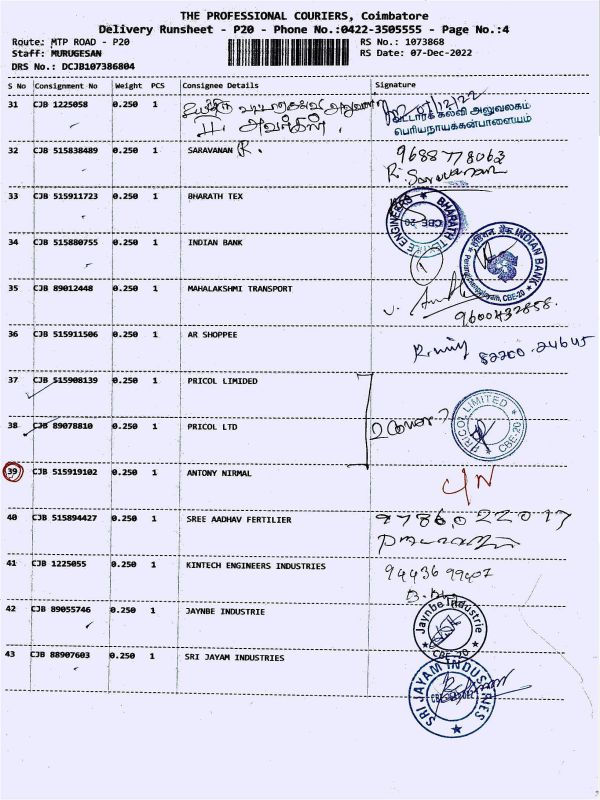 THE PROFESSIONAL COURIERS, Coimbatore
Delivery Runsheet - P20 - Phone No.:0422-3505555 - Page No.:4
Route: MTP ROAD - P20
RS No.: 1073868
Staff: MURUGESAN
RS Date: 07-Dec-2022
DRS No.: DCJB107386804
S No Consignment No Weight PCS Consignee Details Signature
31 CJB 1225058 0.250 1
07/12/22
வட்டாரக் கல்வி அலுவலகம்
பெரியநாயக்கன்பாளையம்
32 CJB 515838489 0.250 1 SARAVANAN R. 9688778063
R. Saravanan
33 CJB 515911723 0.250 1 BHARATH TEX
BHARATH TEX ENGINEERS CBE-20
34 CJB 515880755 0.250 1 INDIAN BANK
INDIAN BANK CBE-20
35 CJB 89012448 0.250 1 MAHALAKSHMI TRANSPORT
9600432858.
36 CJB 515911506 0.250 1 AR SHOPPEE
82200 24645
37 CJB 515908139 0.250 1 PRICOL LIMIDED
38 CJB 89078810 0.250 1 PRICOL LTD
2 Cover
PRICOL LIMITED CBE-20
39 CJB 515919102 0.250 1 ANTONY NIRMAL
40 CJB 515894427 0.250 1 SREE AADHAV FERTILIER
97860 22017
41 CJB 1225055 0.250 1 KINTECH ENGINEERS INDUSTRIES
94436 99407
42 CJB 89055746 0.250 1 JAYNBE INDUSTRIE
Jaynbe Industrie CBE-20
43 CJB 88907603 0.250 1 SRI JAYAM INDUSTRIES
SRI JAYAM INDUSTRIES